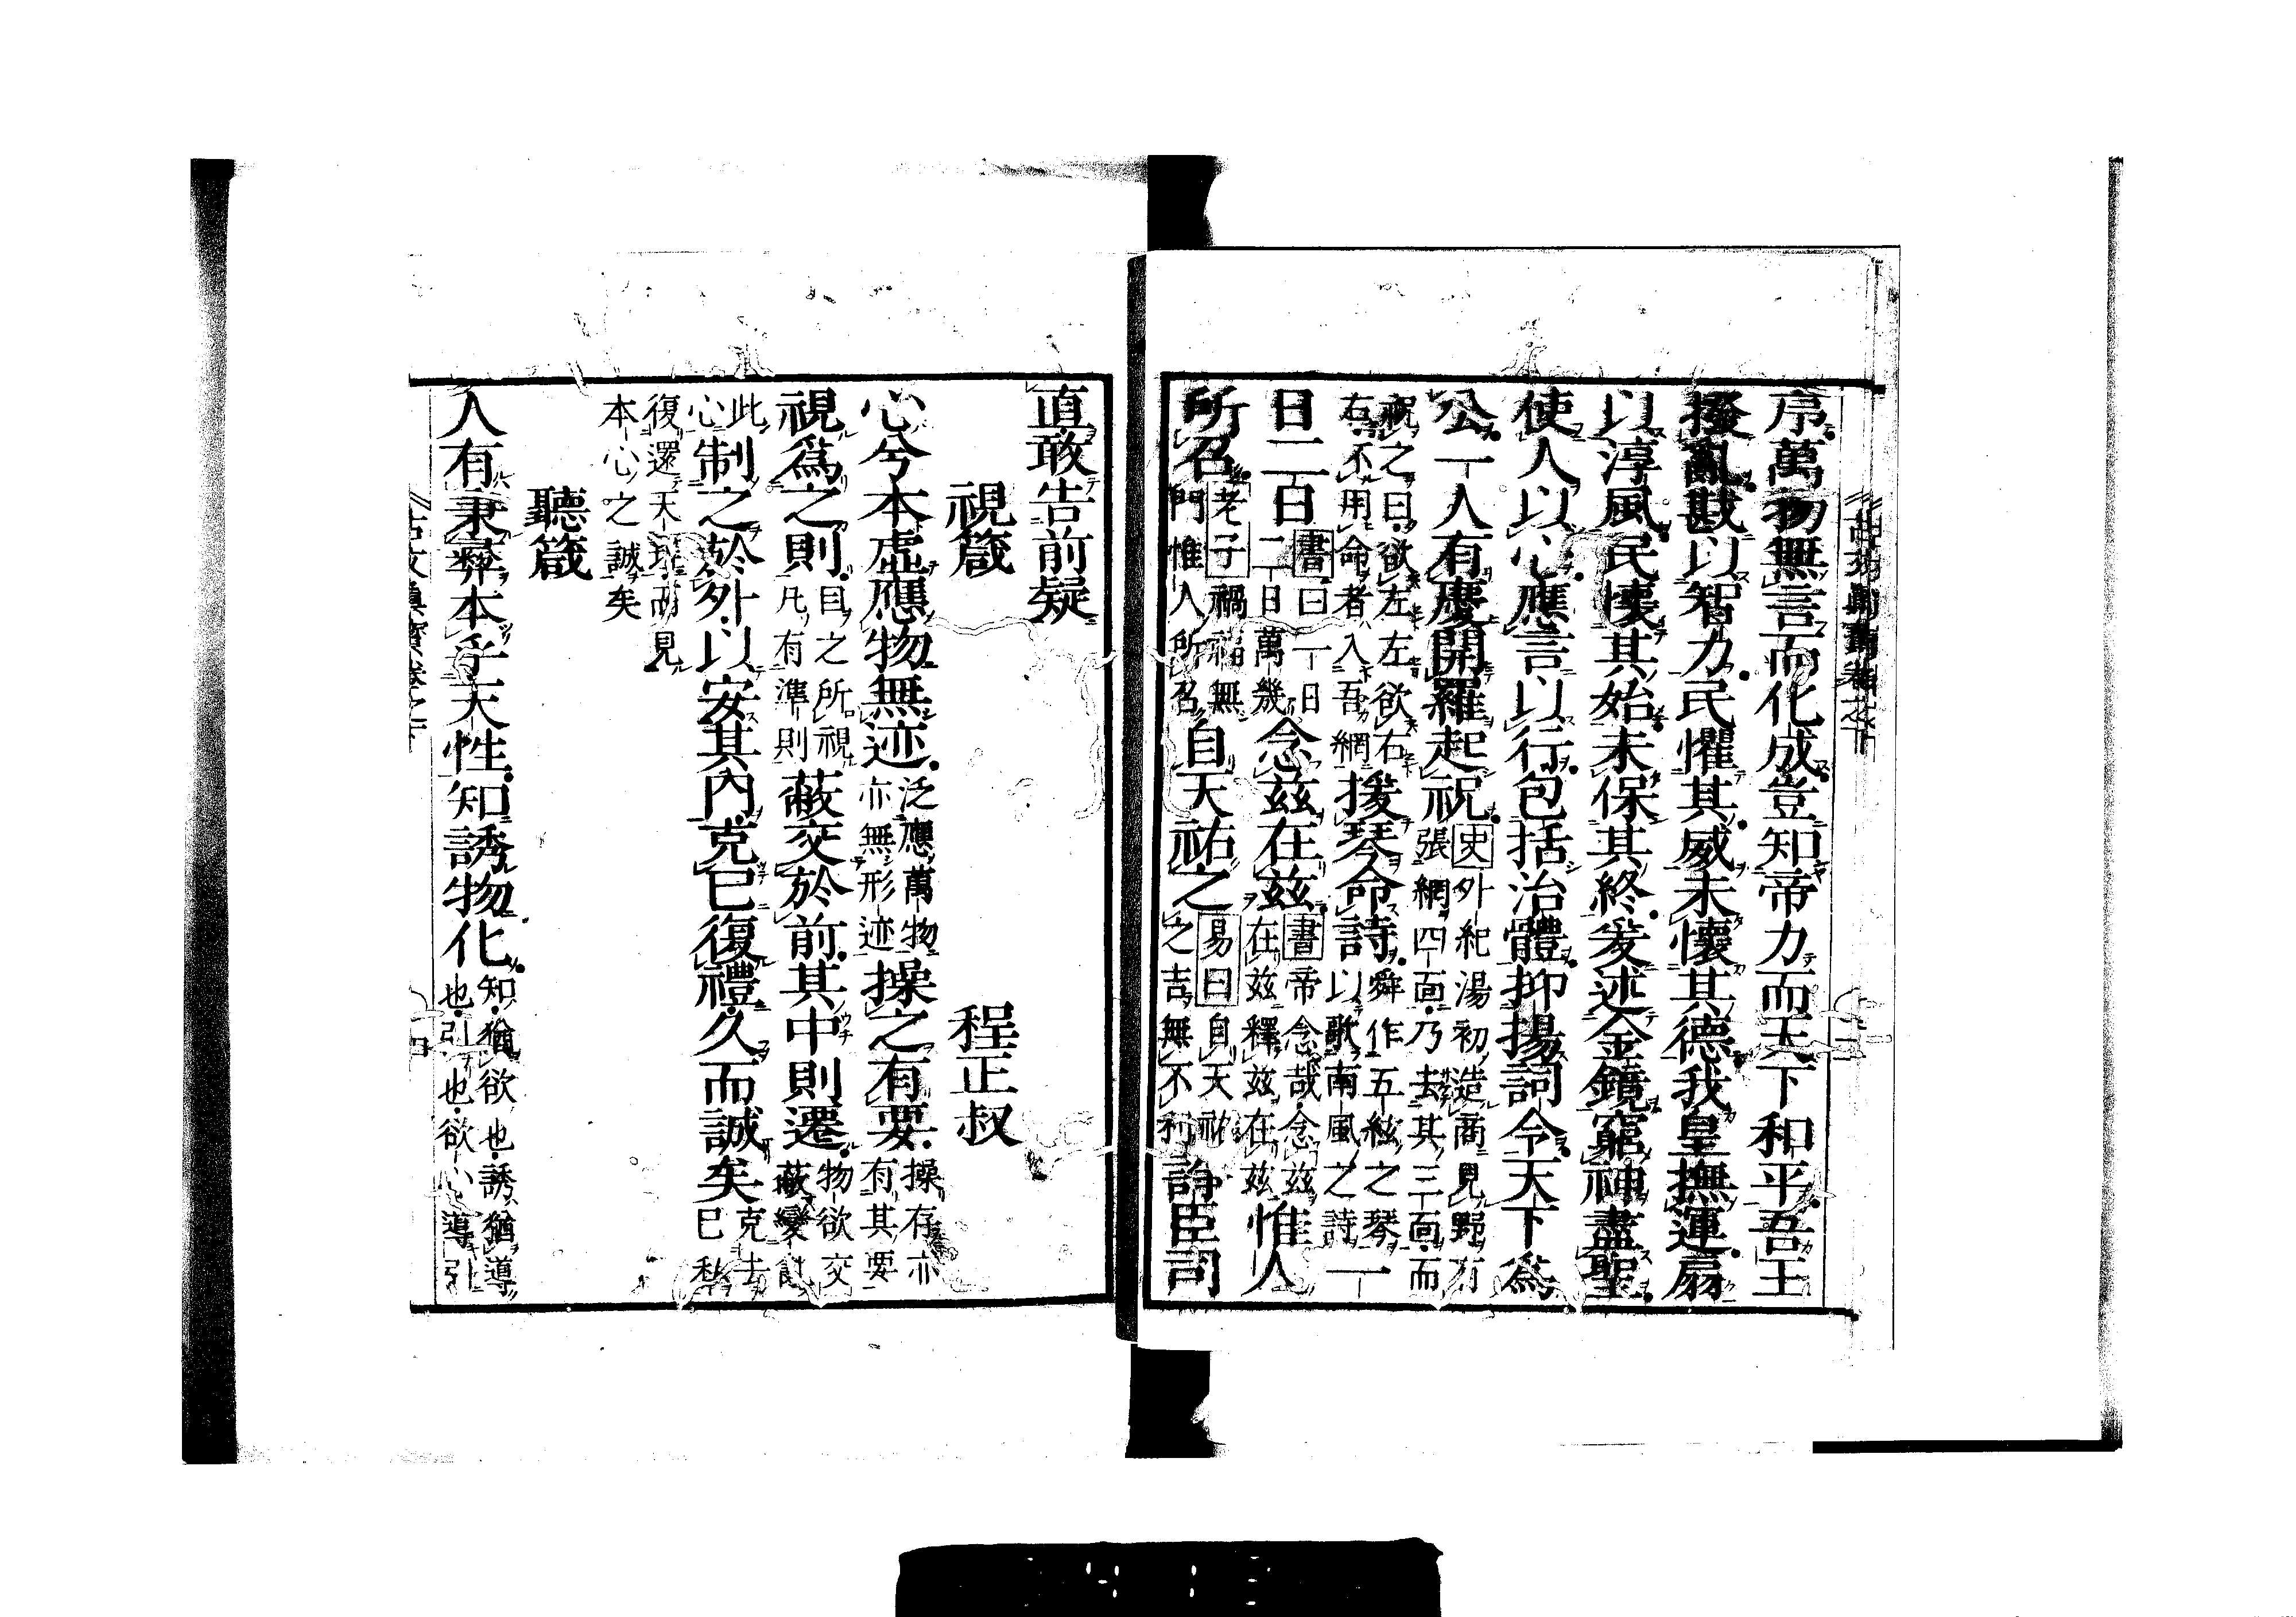 序萬物無言而化成豈知帝力而天下和平吾王
撥亂戡以智力民懼其威未懷其德我皇撫運扇
以淳風民懷其始未保其終爰述金鏡窮神盡聖
使人以心應言以行包括治體抑揚詞令天下爲
公一人有慶開羅起祝史外紀湯初造商見野有張網四面乃去其三面而
祝之曰欲左左欲右右不用命者入吾網援琴命詩舜作五絃之琴以歌南風之詩一
日二日書曰一日二日萬幾念茲在茲書帝念哉念茲在茲釋茲在茲惟人
所召老子禍福無門惟人所召自天祐之易曰自天祐之吉無不利諍臣司
直敢告前疑
視箴 程正叔
心兮本虛應物無迹泛應萬物亦無形迹操之有要操存亦有其要
視爲之則目之所視凡有準則蔽交於前其中則遷物欲交蔽變
此心制之於外以安其內克已復禮久而誠矣克去已私
復還天理而見本心之誠矣
聽箴
人有秉彝本乎天性知誘物化知猶欲也誘猶導也引也欲心導引